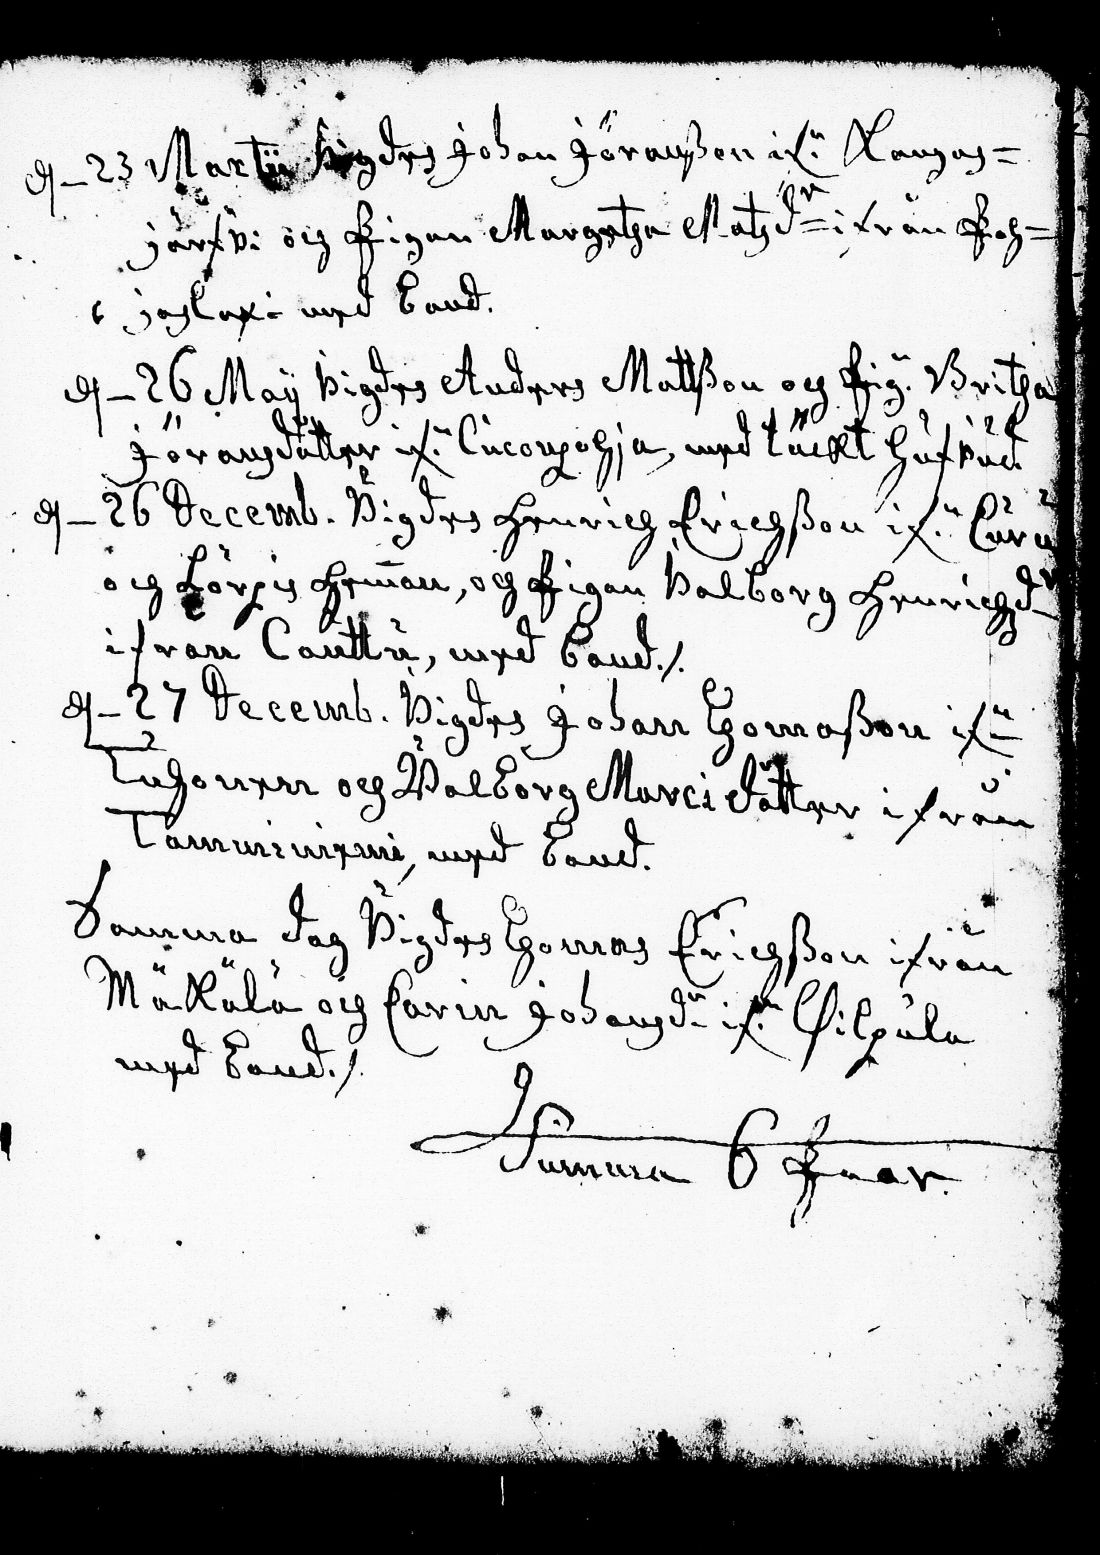 d - 23 Martii Wigdes Johan Jöranßon if:n Kangas=
järfwi och Pigan Margetha Matzd:r ifrån Poh=
jaslaxi med Band.
d - 26 Maij Wigdes Anders Mattßon och Pig. Britha
Jöransdotter if:n Cuconpohja, med täckt hufwud
d - 26 Decemb. Wigdes Henrich Erichßon if:n Curu
och Körpis Hemman, och Pigan Walborg Henrichzd:r
ifrån Cauttu, med Band./.
d - 27 Decemb. Wigdes Johan Thomaßon if:n
Tuhonen och Walborg Marci dotter ifrån
Tamminiemi, med Band.
Samma dag Wigdes Thomas Erichßon ifrån
Mäkälä och Carin Johansd:r if:n Filpula
med Band./.
Summa 6 Paar.